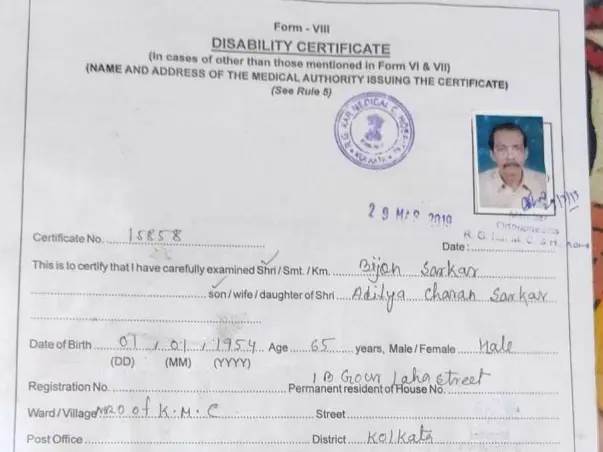 Form - VIII
DISABILITY CERTIFICATE
(In cases of other than those mentioned in Form VI & VII)
(NAME AND ADDRESS OF THE MEDICAL AUTHORITY ISSUING THE CERTIFICATE)
(See Rule 5)
R. G. KAR MEDICAL C. HOSPITAL KOLKATA
29 MAR 2019
Certificate No. 15858
Date :
This is to certify that I have carefully examined Shri / Smt. / Km. Bijon Sarkar
son / wife / daughter of Shri Aditya Charan Sarkar
Date of Birth 07 , 01 , 1954 Age 65 years, Male / Female Male
(DD) (MM) (YYYY)
1B Gour Laha Street
Registration No. Permanent resident of House No.
Ward / Village NRO of K.M.C Street
Post Office District Kolkata